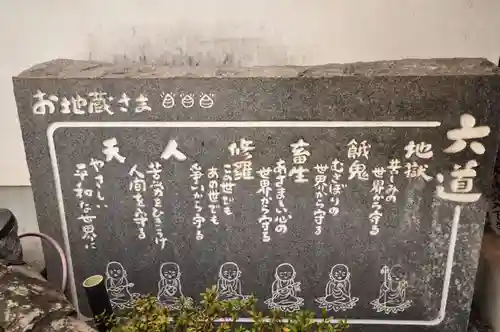 お地蔵さま
六道
地獄
苦しみの
世界から守る
餓鬼
むさぼりの
世界から守る
畜生
あさましい心の
世界から守る
修羅
この世でも
あの世でも
争いから守る
人
苦労をひきうけ
人間を守る
天
やさしい
平和な世界に